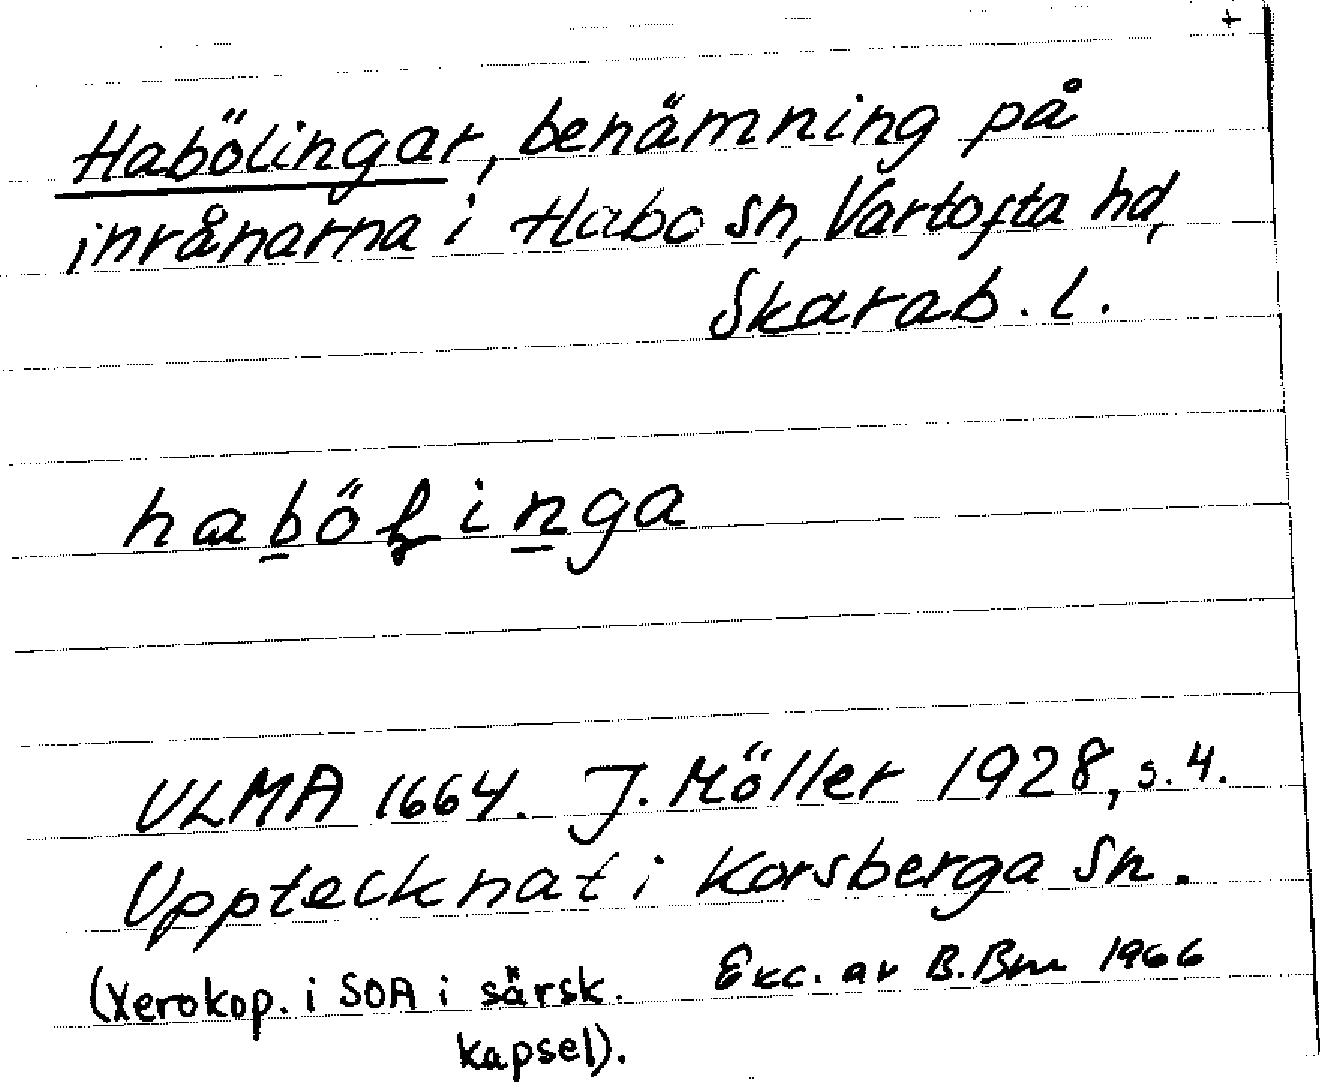 +
Habölingar, benämning på
invånarna i Habo sn, Vartofta hd,
Skarab. l.
haböłinga
ULMA 1664. J. Möller 1928, s. 4.
Upptecknat i Korsberga sn.
(Xerokop. i SOA i särsk. Exc. av B. Bm 1966
kapsel).